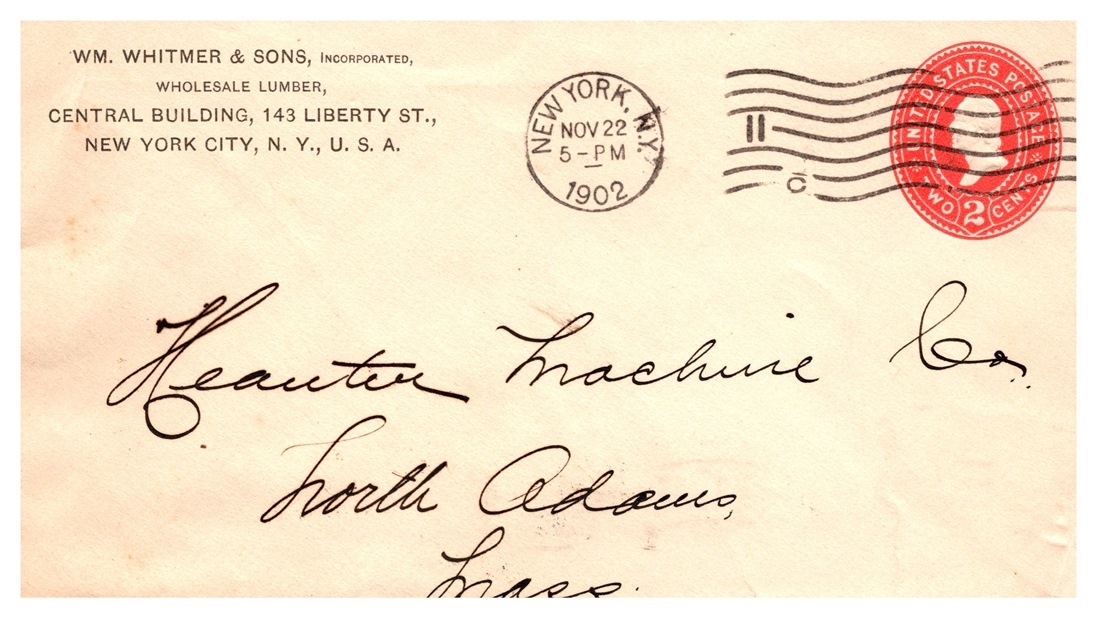 WM. WHITMER & SONS, INCORPORATED,
WHOLESALE LUMBER,
CENTRAL BUILDING, 143 LIBERTY ST.,
NEW YORK CITY, N. Y., U. S. A.
NEW YORK, N.Y.
NOV 22
5-PM
1902
11
C
UNITED STATES POSTAGE
TWO 2 CENTS
Machine Co.
North Adams,
Mass.